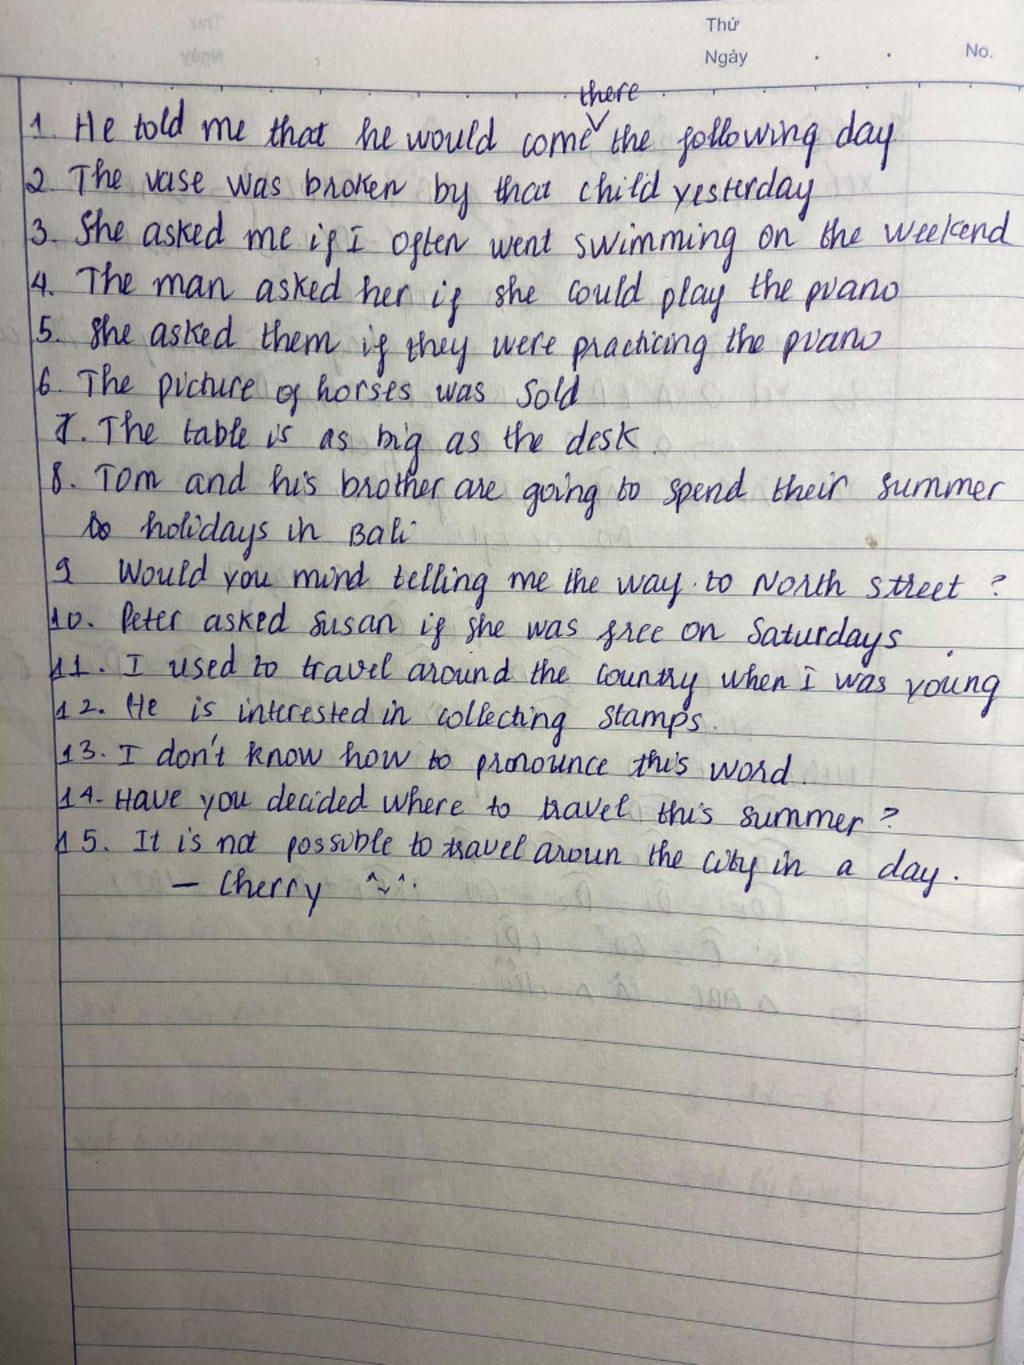 Thứ
Ngày
No.
there
1. He told me that he would come the following day
2. The vase was broken by that child yesterday
3. She asked me if I often went swimming on the weekend
4. The man asked her if she could play the piano
5. She asked them if they were practicing the piano
6. The picture of horses was sold
7. The table is as big as the desk.
8. Tom and his brother are going to spend their summer
holidays in Bali
9 Would you mind telling me the way to North street ?
10. Peter asked Susan if she was free on Saturdays.
11. I used to travel around the country when I was young
12. He is interested in collecting stamps.
13. I don't know how to pronounce this word.
14. Have you decided where to travel this summer ?
15. It is not possible to travel aroun the city in a day.
– Cherry ^~^.